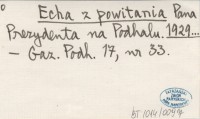 Echa z powitania Pana
Prezydenta na Podhalu. 1929...
— Gaz. Podh. 17, nr 33.